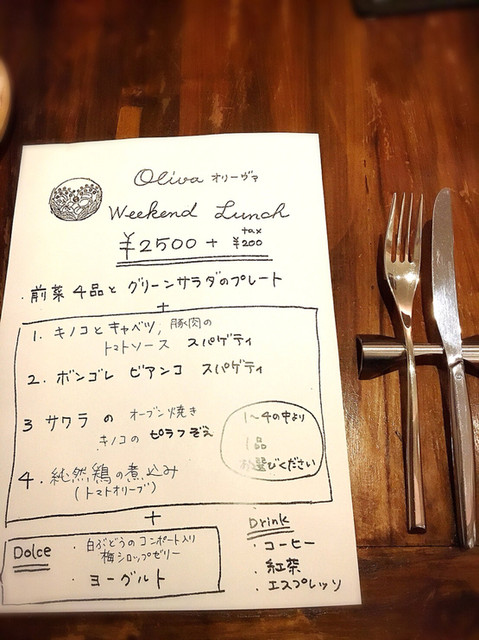 Oliva オリーヴァ
Weekend Lunch
¥2500 + tax ¥200
・前菜4品と グリーンサラダのプレート
+
1. キノコとキャベツ, 豚肉の
トマトソース スパゲティ
2. ボンゴレ ビアンコ スパゲティ
3 サワラ の オーブン焼き
キノコの ピラフぞえ
4. 純然鶏の煮込み
(トマトオリーブ)
1~4の中より
1品
お選びください
+
Dolce
・白ぶどうのコンポート入り
梅シロップゼリー
・ヨーグルト
Drink
・コーヒー
・紅茶
・エスプレッソ